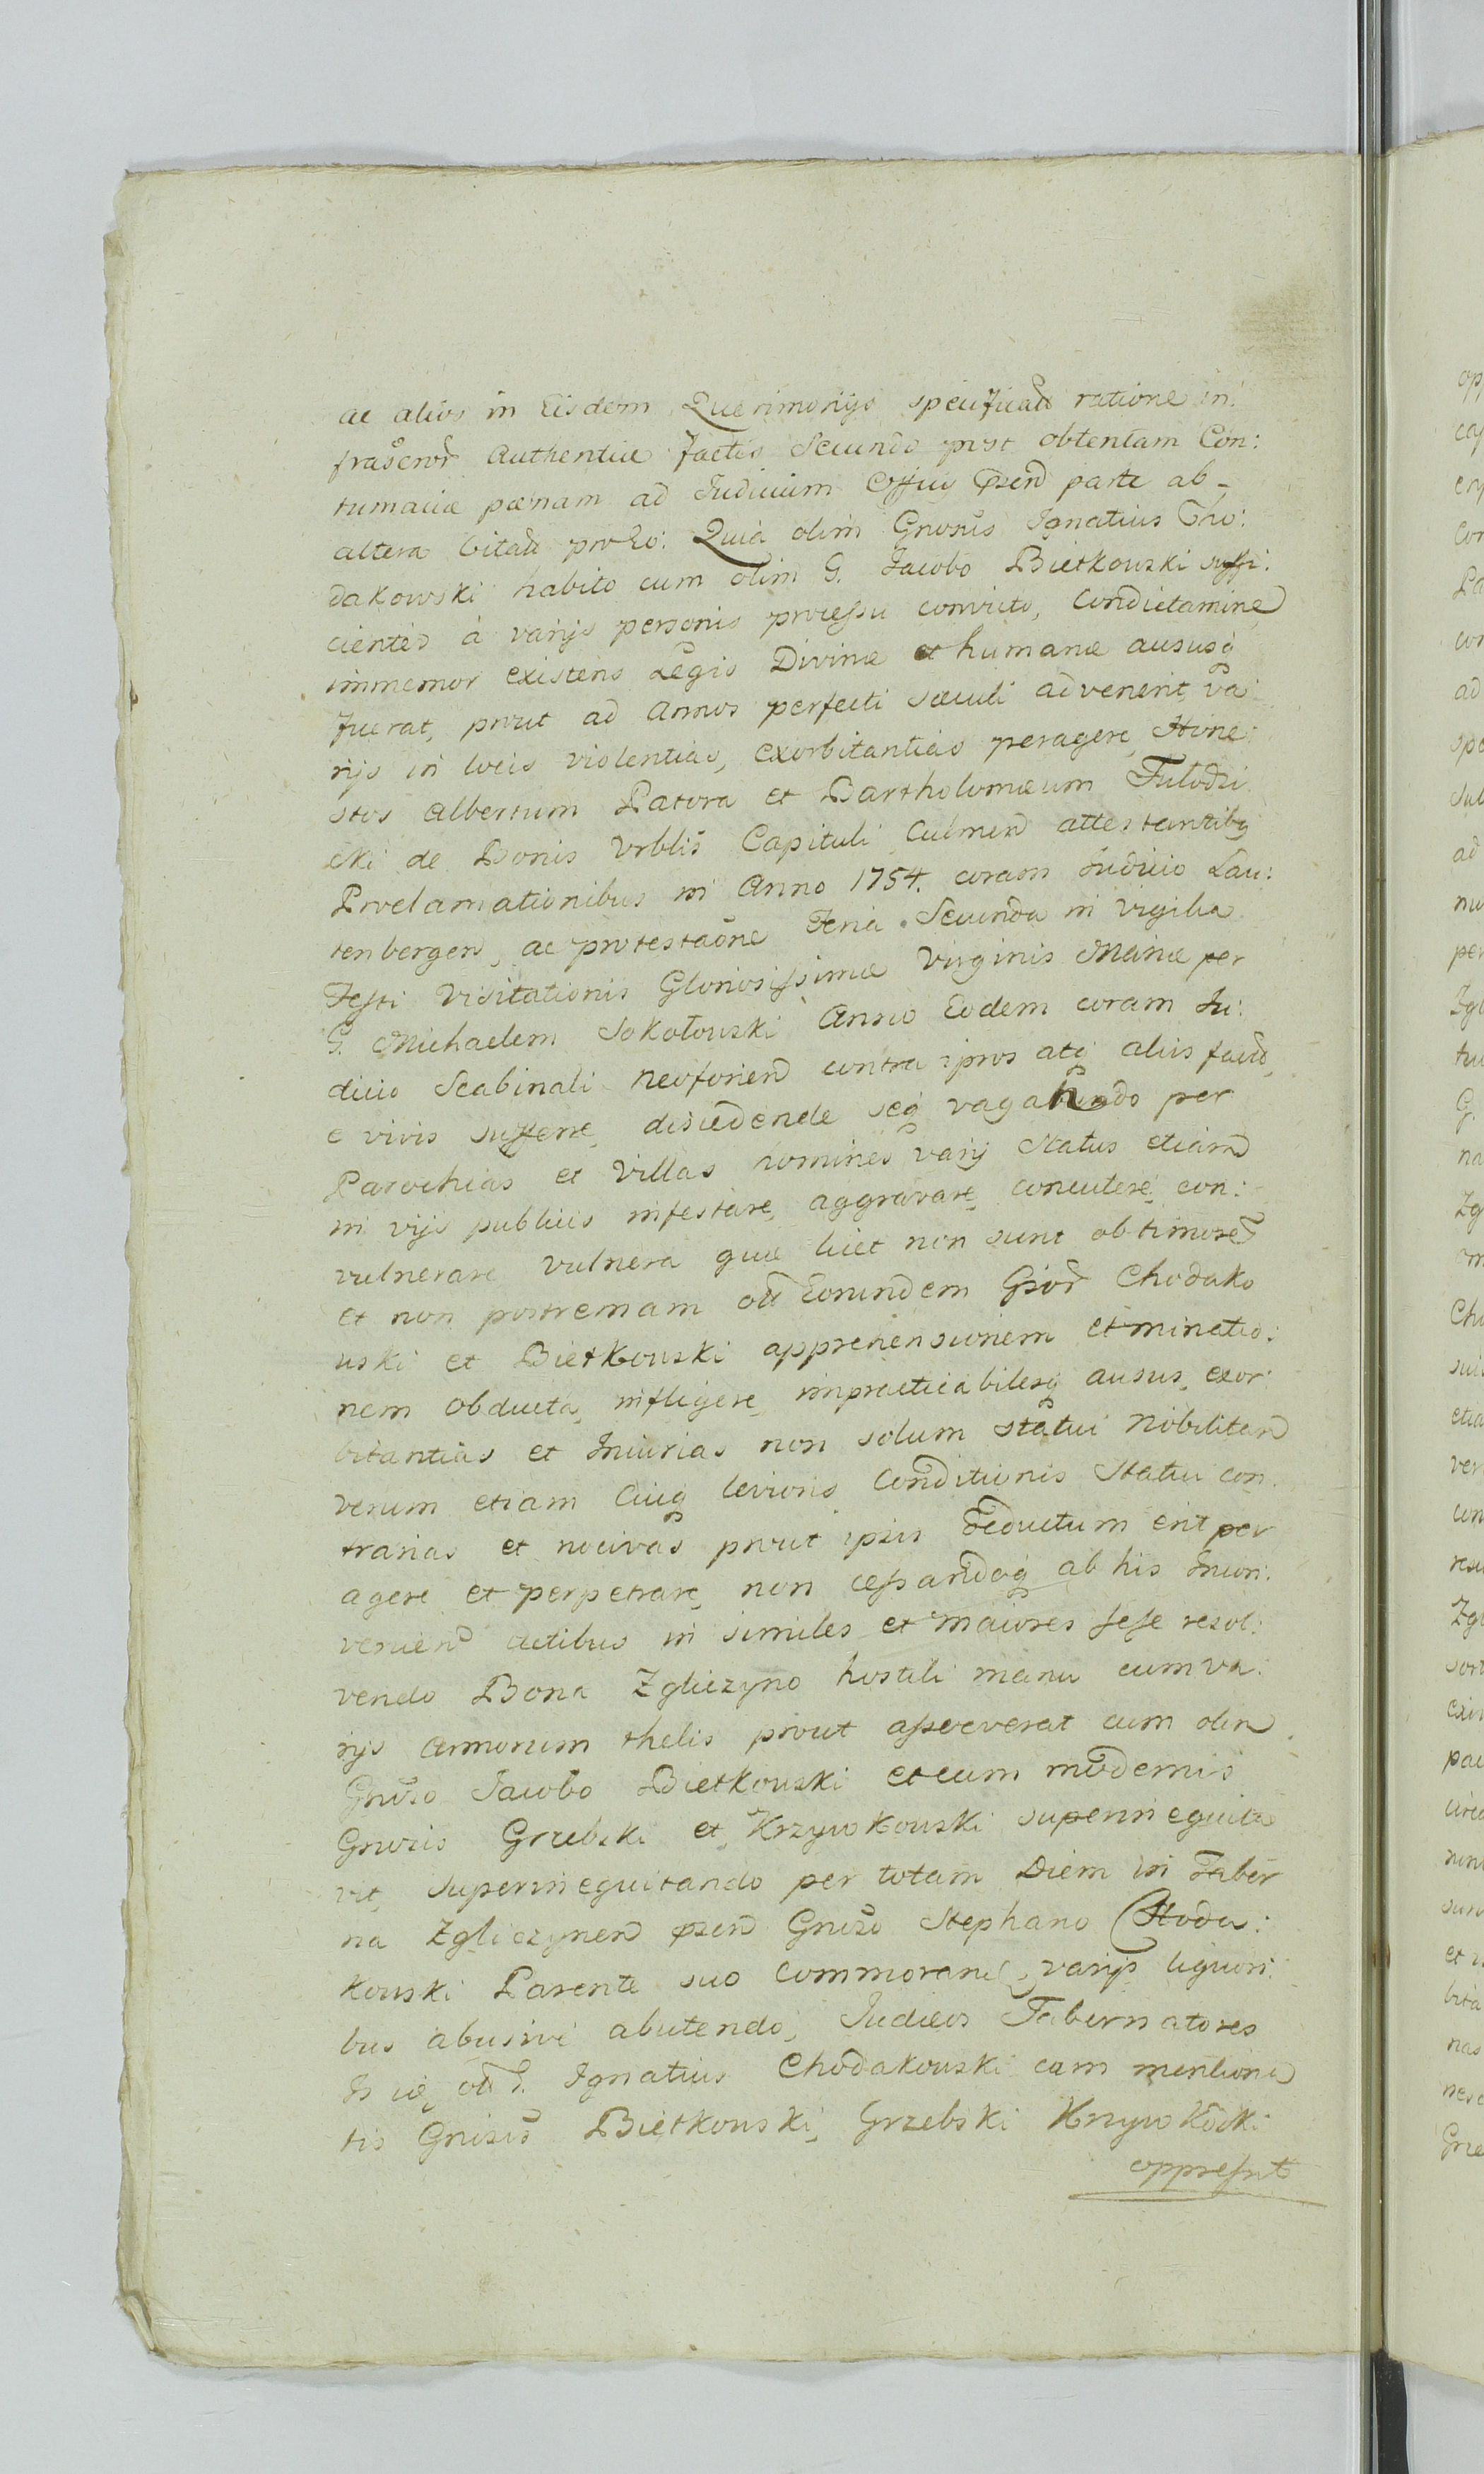 ac alios in Eisdem Querimonijs specificatt ratione in:
frascror Authentice factis Secundo post obtentam Con:
tumaciæ pœnam ad Iudicium psend parte ab
altera Citatt pro Eo: Quia olim Gnosus Ignatius Cho:
dakowski habito cum olim G. Iacobo Bietkowski suffi:
cientes à varijs personis processu convicto, Condictamine
immemor existens Legis Divinæ et humanæ aususq
fuerat, prout ad Annos perfecti sæculi advenerit, va
rijs in locis violentias, exorbitantias peragere, Hone:
stos Albertum Patora et Bartholomæum
cki de Bonis Vrblis Capituli Culmen attestantibq
Proclamationibus in Anno 1754. coram Iudicio Lau:
tenbergen, ac protestaone Feria Secunda in Vigilia
Festi Visitationis Gloriosissimæ Virginis Mariæ per
G. Michaelem Sokołowski Anno Eodem coram Iu:
dicio Scabinali Neoforien contra ipsos atq alios
e vivis seq vagabundo per
Parochias et Villas homines varij Status etiam
in vijs publicis infestare, aggravare, concutere, con:
vulnerare, vulnera quæ licet non sunt ob timore
et non postremam ott Eorundem Gsor Chodako
wski et Bietkowski apprehensionem et minatio:
nem obducta, infligere, impracticabilesq ausus, exor
bitantias et Iniurias non solum statui Nobilitari
verum etiam Cuiq levioris Conditionis Statui con
trarias et nocivas prout ipsis deductum erit per
agere et perpetrare, non cessandoq ab his Incon:
venien actibus in similes et maiores sese resol:
vendo Bona Zgliczyno hostili manu cum va:
rijs Armorum thelis prout assueverat cum olim
Gnoso Iacobo Bietkowski et cum modernis
Gnosis Grzebski et Krzywkowski superinequita
vit, superinequitando per totam Diem in Taber
na Zgliczynen psen Gnoso Stephano Choda:
kowski Parente suo commoran, varijs liquori:
bus abusive abutendo, Iudæos Tabernatores
Ignatius Chodakowski cum mentiona
tis Gnosis Bietkowski, Grzebski Krzywkoski
oppressit